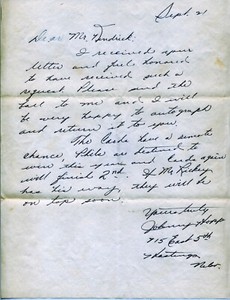 Sept. 21
Dear Mr. Kendrick:
I received your
letter and feel honored
to have received such a
request. Please send the
ball to me and I will
be very happy to autograph
and return it to you.
The Cards have a remote
chance, Phils are destined to
win this year and Cards again
will finish 2nd. If Mr. Rickey
has his way, they will be
on top soon.
Yours truly
Johnny Hopp
715 East 5th
Hastings
Nebr.